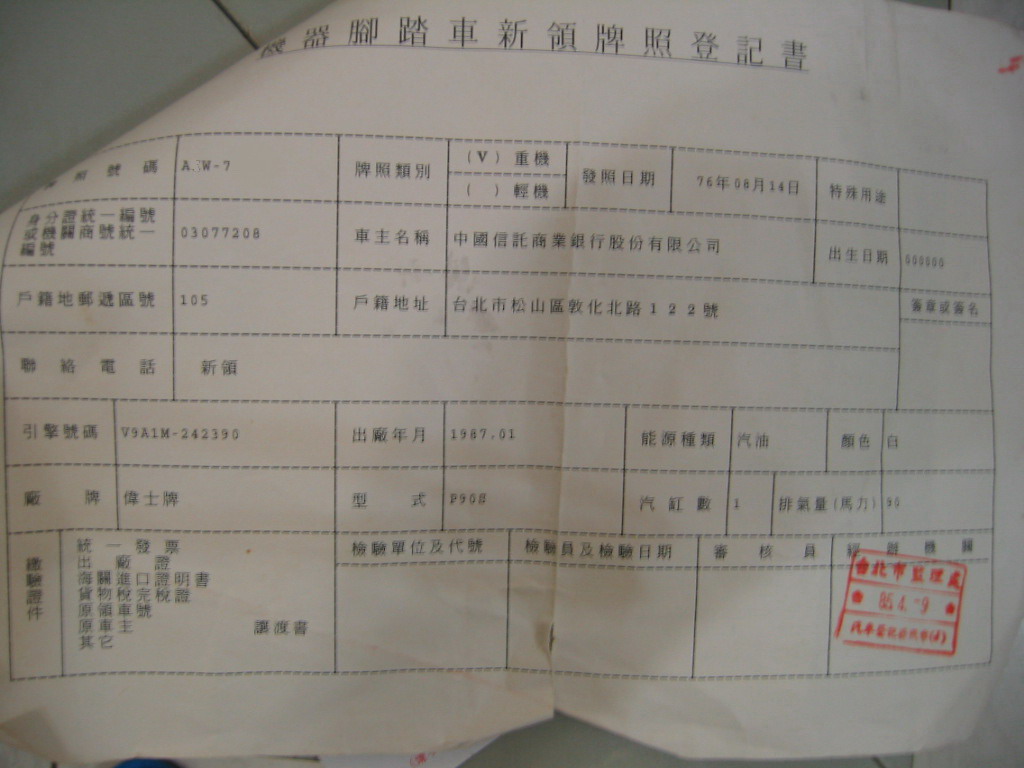 機器腳踏車新領牌照登記書
號碼
牌照類別
(V) 重機
( ) 輕機
發照日期
76年08月14日
特殊用途
身分證統一編號
或機關商號統一
編號
03077208
車主名稱
中國信託商業銀行股份有限公司
出生日期
000000
戶籍地郵遞區號
105
戶籍地址
台北市松山區敦化北路122號
簽章或簽名
聯絡電話
新領
引擎號碼
V9A1M-242390
出廠年月
1987.01
能源種類
汽油
顏色
白
廠牌
偉士牌
型式
P90S
汽缸數
1
排氣量(馬力)
90
繳驗證件
統一發票
出廠證
海關進口證明書
貨物稅完稅證
原領車號
原車主 讓渡書
其它
檢驗單位及代號
檢驗員及檢驗日期
審核員
經辦機關
台北市監理處
85.4.-9